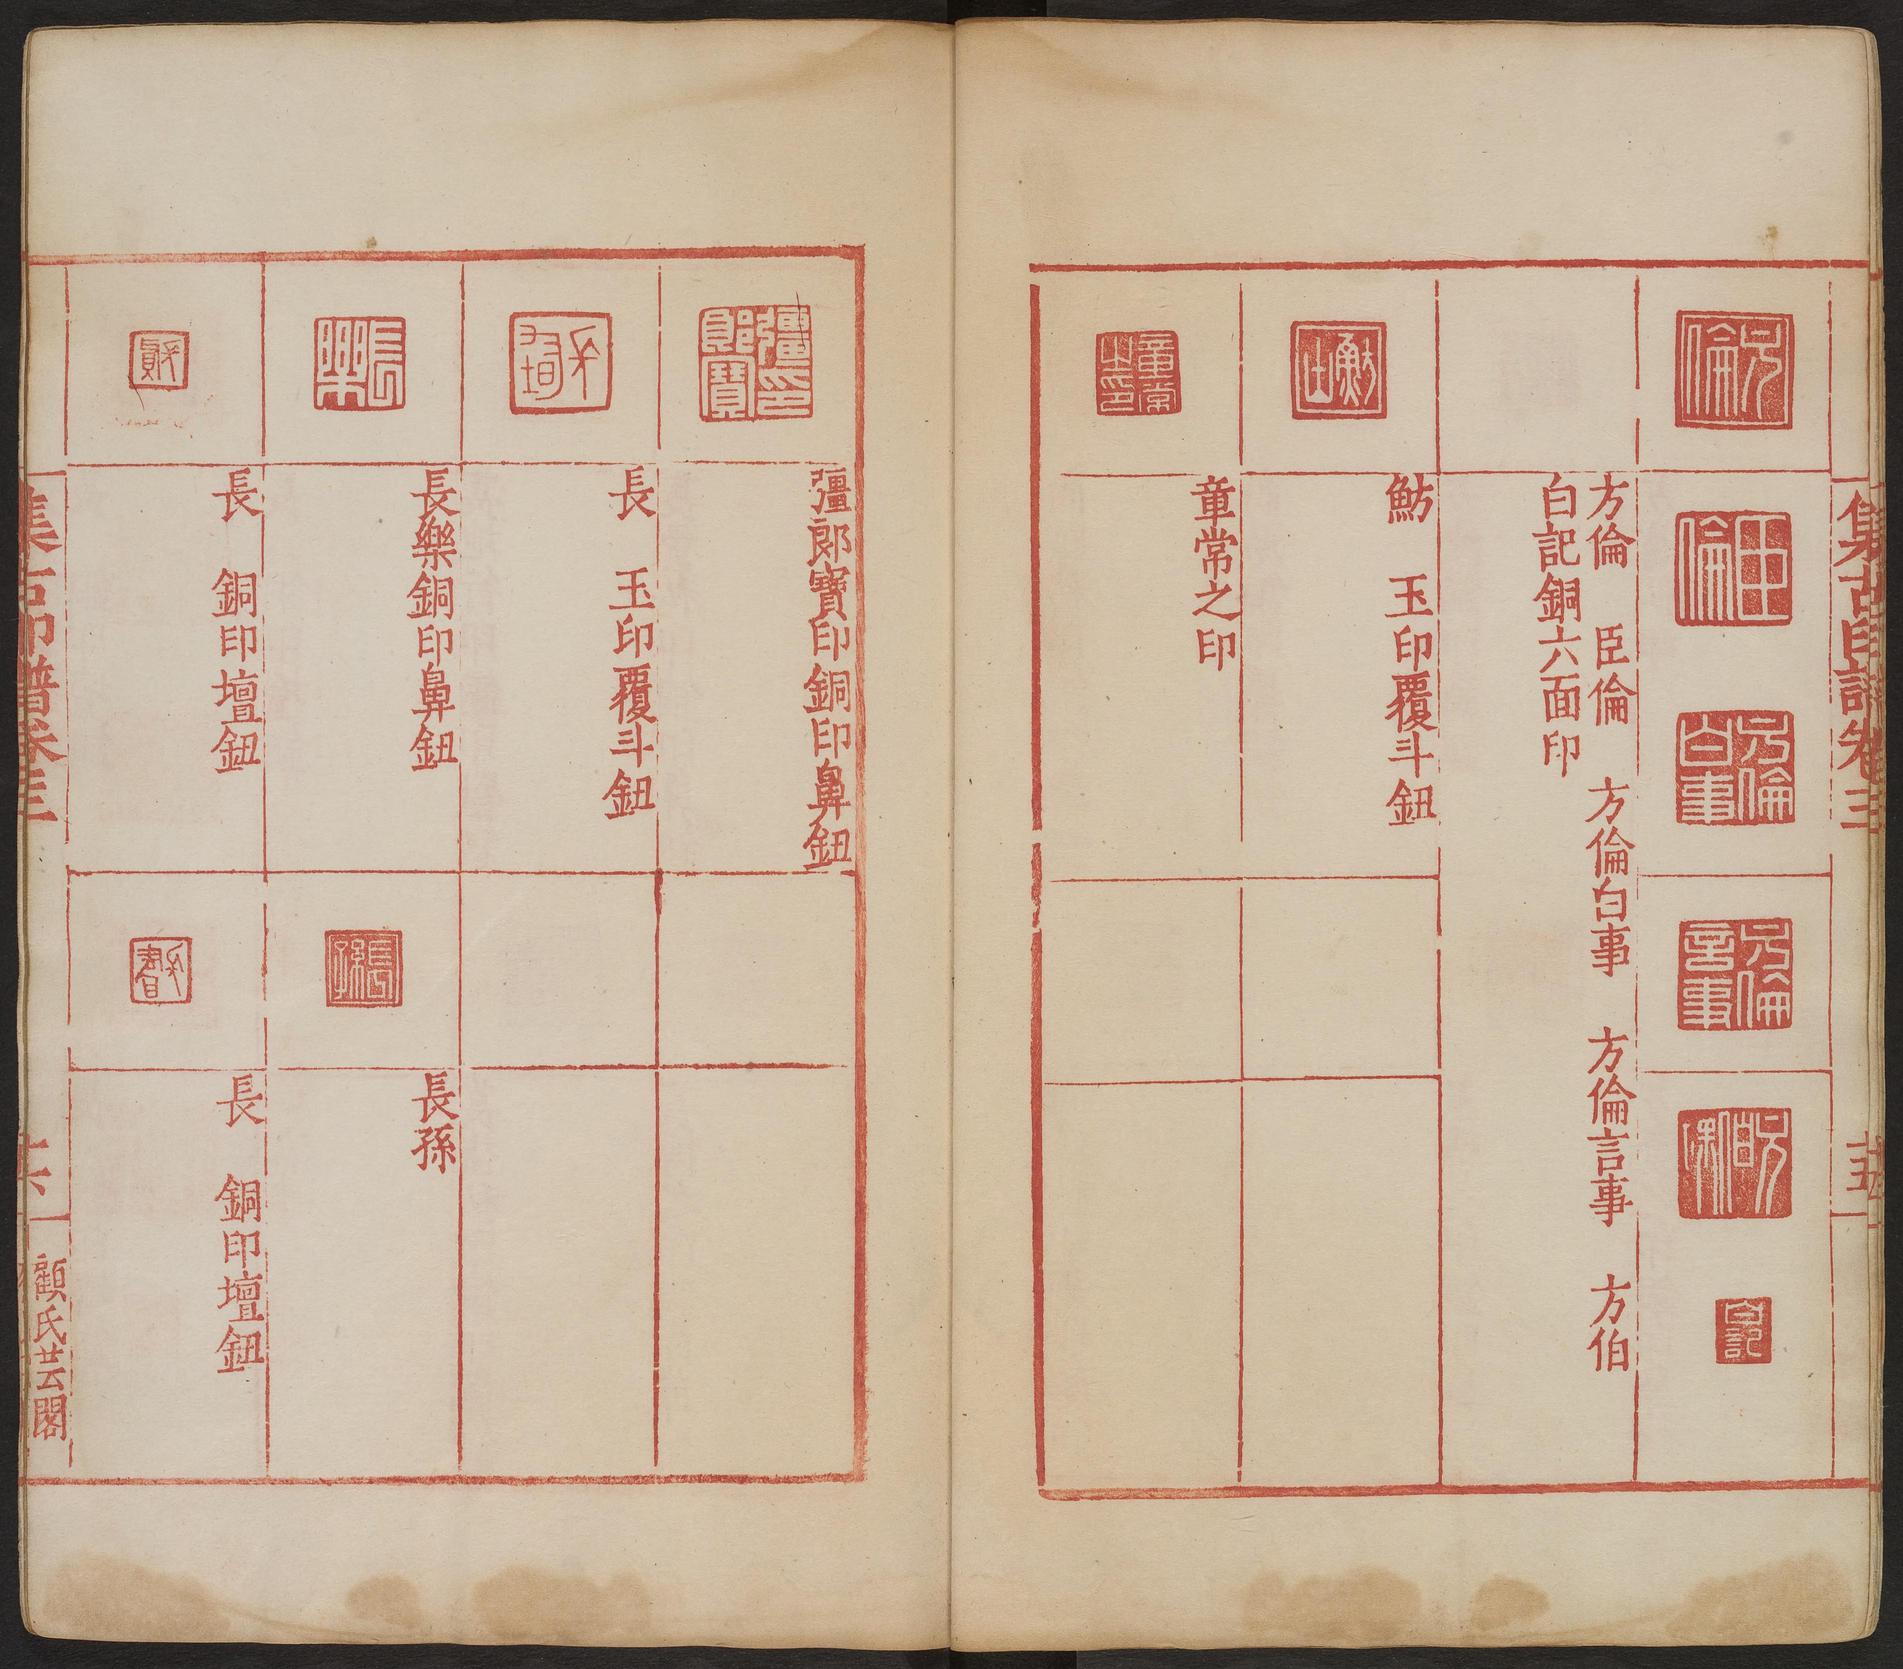 集古印譜卷三
十五
方倫　臣倫　方倫白事　方倫言事　方伯
白記銅六面印
魴　玉印覆斗鈕
章常之印
彊郎寶印銅印鼻鈕
長　玉印覆斗鈕
長樂銅印鼻鈕
長孫
長　銅印壇鈕
長　銅印壇鈕
集古印譜卷三
十六
顧氏芸閣